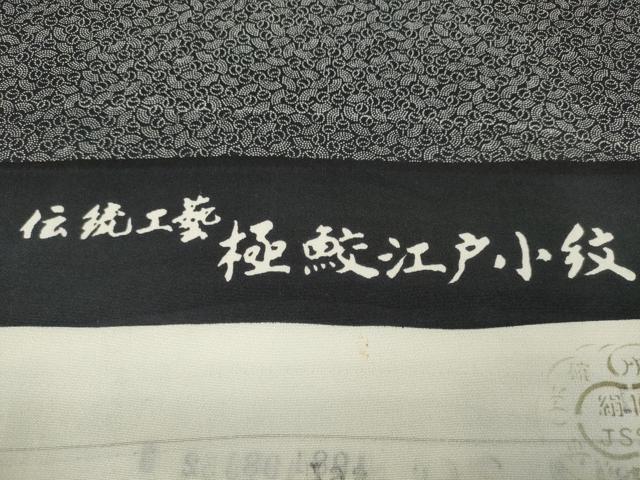 伝統工藝 極鮫江戸小紋
絹
JSS